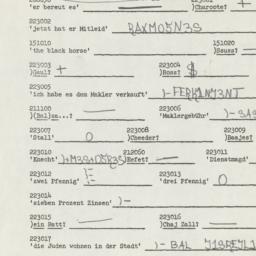 'er bereut es' )Charoote?
223002
'jetzt hat er Mitleid' RAXMO5N3S
151010 151020
'the black horse' )Seuss?
223003 223004
)Gaul? + )Ross? $
223005
'ich habe es dem Makler verkauft'
211100 223006
)(Bei)un...? 'Maklergebühr'
223007 223008 223009
'Stall' O )Cheeder? )Baajes?
223010 212060 223011
'Knecht' )Hefet? 'Dienstmagd'
223012 223013
'zwei Pfennig' 'drei Pfennig' O
223014
'sieben Prozent Zinsen' )-
223015 223016
)ein Batt? )Chaj Zall?
223017
'die Juden wohnen in der Stadt' )- BAL